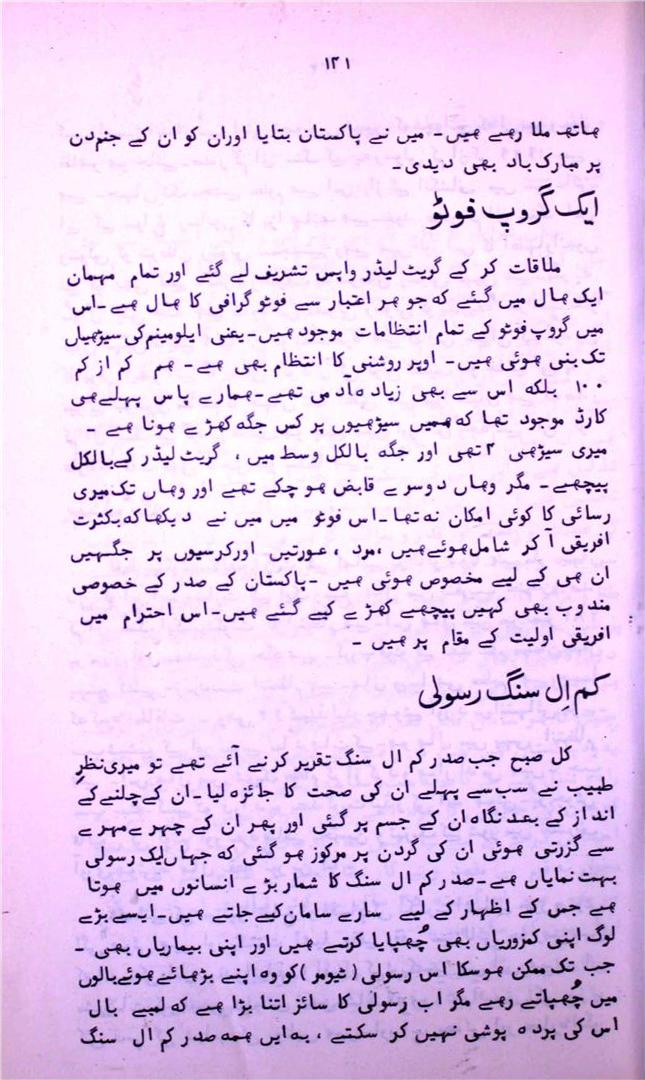 ۱۲۱
ہاتھ ملا رہے ہیں۔ میں نے پاکستان بتایا اوران کو ان کے جنم دن
پر مبارک باد بھی دیدی۔
ایک گروپ فوٹو
ملاقات کر کے گریٹ لیڈر واپس تشریف لے گئے اور تمام مہمان
ایک ہال میں گئے کہ جو ہر اعتبار سے فوٹو گرافی کا ہال ہے۔ اس
میں گروپ فوٹو کے تمام انتظامات موجود ہیں۔ یعنی ایلومینم کی سیڑھیاں
تک بنی ہوئی ہیں۔ اوپر روشنی کا انتظام بھی ہے۔ ہم کم از کم
۱۰۰ بلکہ اس سے بھی زیادہ آدمی تھے۔ ہمارے پاس پہلے ہی
کارڈ موجود تھا کہ ہمیں سیڑھیوں پر کس جگہ کھڑے ہونا ہے ۔
میری سیڑھی ۲ تھی اور جگہ بالکل وسط میں ، گریٹ لیڈر کے بالکل
پیچھے ۔ مگر وہاں دوسرے قابض ہو چکے تھے اور وہاں تک میری
رسائی کا کوئی امکان نہ تھا۔ اس فوٹو میں میں نے دیکھا کہ بکثرت
افریقی آ کر شامل ہوئے ہیں ، مرد ، عورتیں اور کرسیوں پر جگہیں
ان ہی کے لیے مخصوص ہوئی ہیں ۔ پاکستان کے صدر کے خصوصی
مندوب بھی کہیں پیچھے کھڑے کیے گئے ہیں۔ اس احترام میں
افریقی اولیت کے مقام پر ہیں ۔
کم اِل سنگ رسولی
کل صبح جب صدر کم ال سنگ تقریر کرنے آئے تھے تو میری نظرِ
طبیب نے سب سے پہلے ان کی صحت کا جائزہ لیا۔ ان کے چلنے کے
انداز کے بعد نگاہ ان کے جسم پر گئی اور پھر ان کے چہرے مہرے
سے گزرتی ہوئی ان کی گردن پر مرکوز ہو گئی کہ جہاں ایک رسولی
بہت نمایاں ہے۔ صدر کم ال سنگ کا شمار بڑے انسانوں میں ہوتا
ہے جس کے اظہار کے لیے سارے سامان کیے جاتے ہیں۔ ایسے بڑے
لوگ اپنی کمزوریاں بھی چُھپایا کرتے ہیں اور اپنی بیماریاں بھی ۔
جب تک ممکن ہو سکا اس رسولی (ٹیومر) کو وہ اپنے بڑھائے ہوئے بالوں
میں چُھپاتے رہے مگر اب رسولی کا سائز اتنا بڑا ہے کہ لمبے بال
اس کی پردہ پوشی نہیں کر سکتے ، بہ ایں ہمہ صدر کم ال سنگ